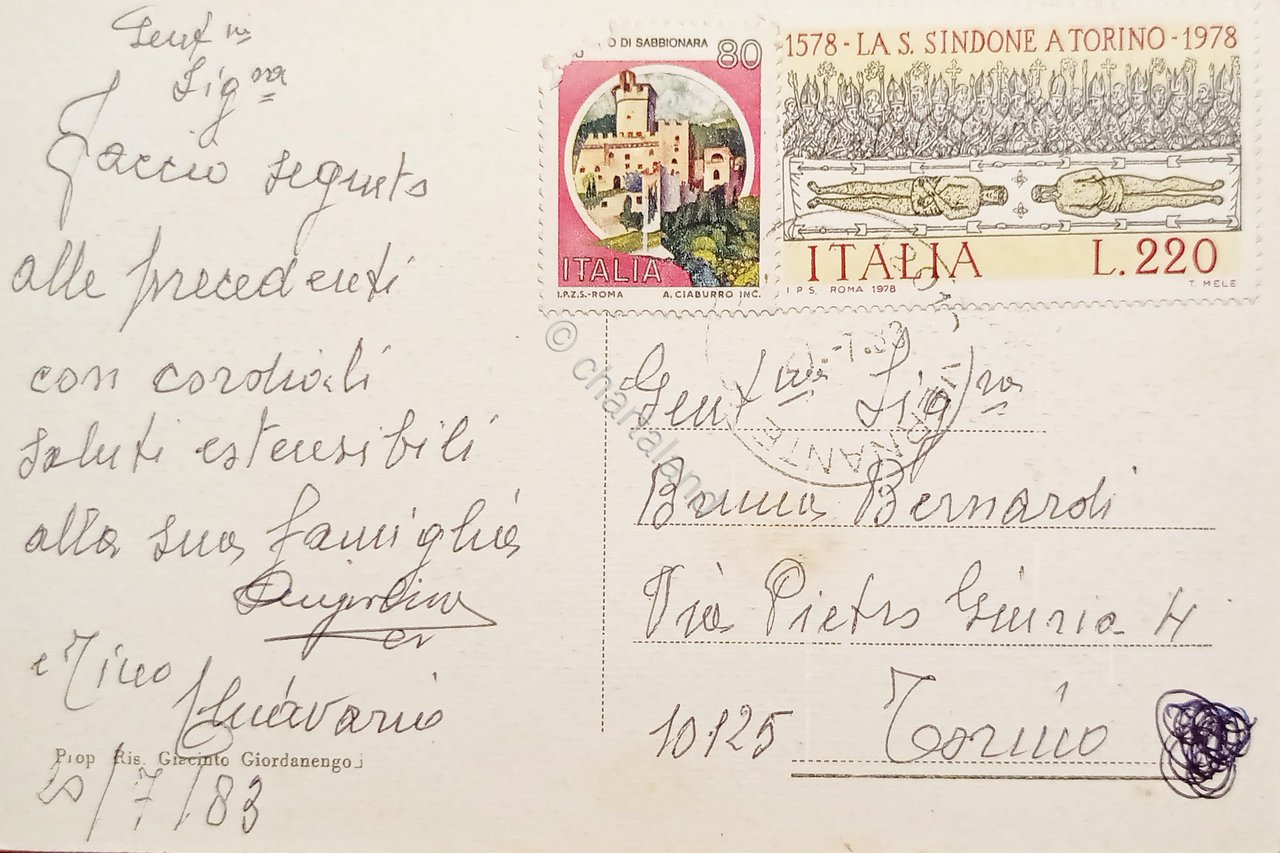 Gent ma
Sig na
Faccio seguito
alle precedenti
con cordiali
saluti estensibili
alla sua famiglia
e Nino
Prop Ris. Giacinto Giordanengo
20/7/83
DI SABBIONARA 80
ITALIA
I.P.Z.S.-ROMA A. CIABURRO INC.
1578 - LA S. SINDONE A TORINO - 1978
ITALIA L.220
I P S. ROMA 1978 T. MELE
VERNANTE
© chartaland
Gent ma Sig na
Bruna Bernardi
Via Pietro Giuria 4
10125 Torino